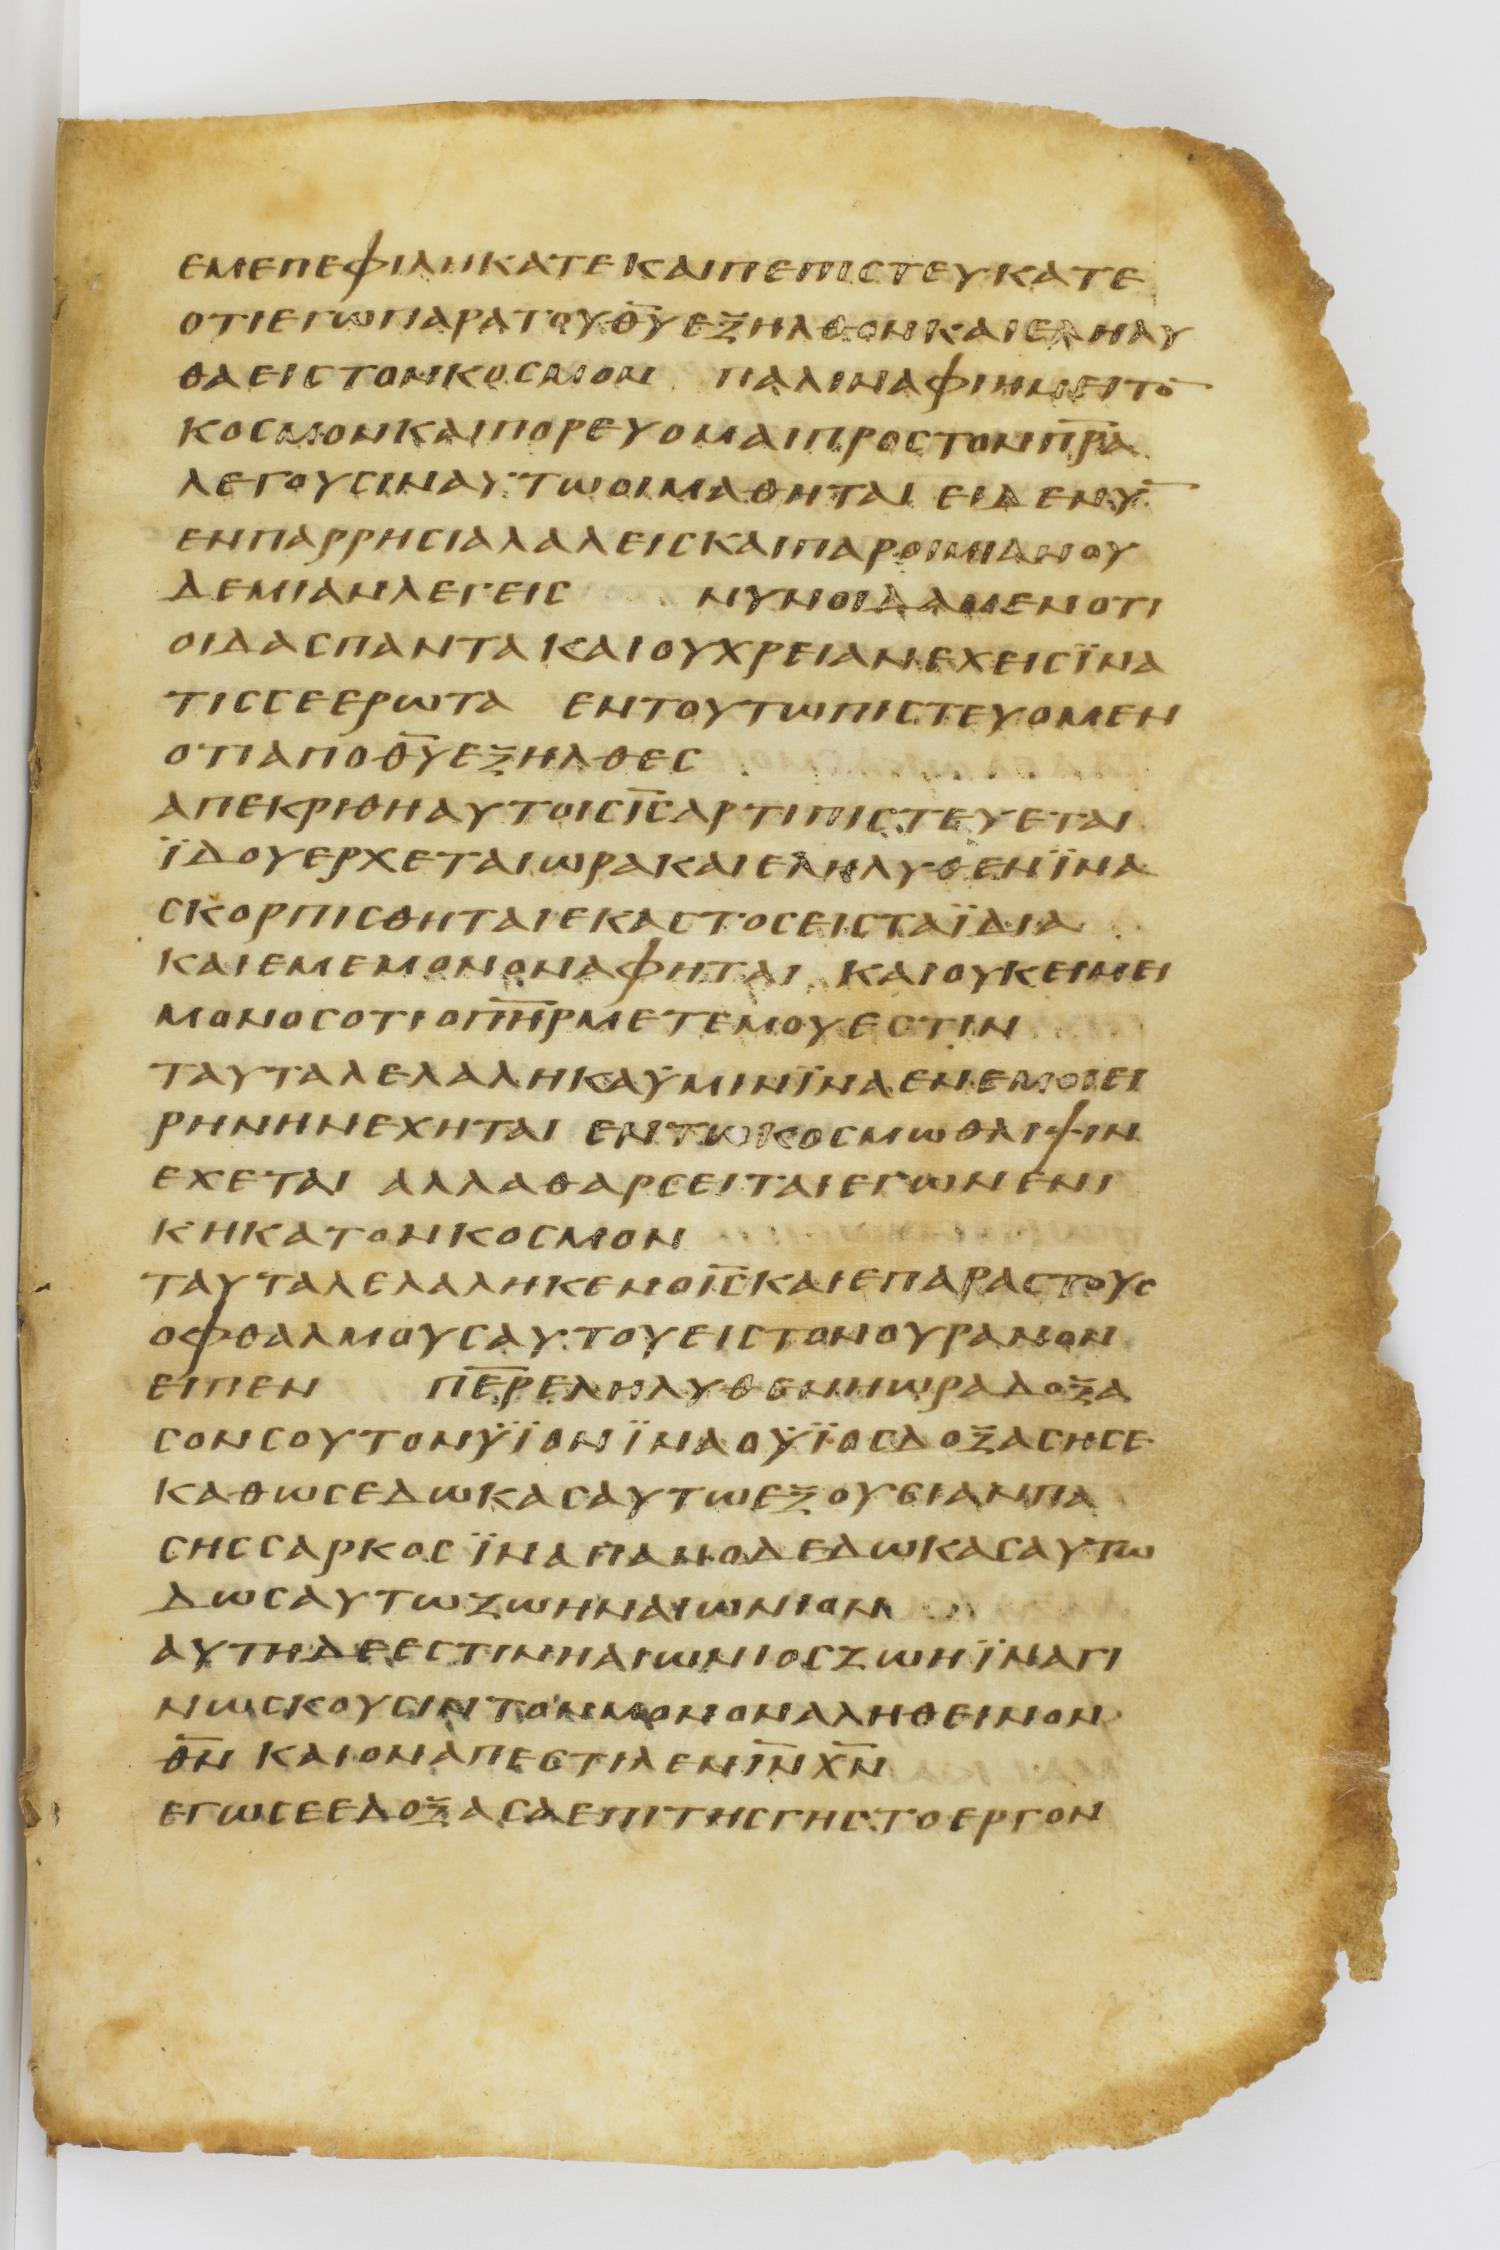 ΕΜΕΠΕΦΙΛΗΚΑΤΕΚΑΙΠΕΠΙСΤΕΥΚΑΤΕ
ΟΤΙΕΓΩΠΑΡΑΤΟΥΘ̅Υ̅ΕΞΗΛΘΟΝΚΑΙΕΛΗΛΥ
ΘΑΕΙСΤΟΝΚΟСΜΟΝ ΠΑΛΙΝΑΦΙΗΜΕΙΤΟ̅
ΚΟСΜΟΝΚΑΙΠΟΡΕΥΟΜΑΙΠΡΟСΤΟΝΠ̅Ρ̅Α̅
ΛΕΓΟΥСΙΝΑΥΤΩΟΙΜΑΘΗΤΑΙ ΕΙΔΕΝΥ̅
ΕΝΠΑΡΡΗСΙΑΛΑΛΕΙСΚΑΙΠΑΡΟΙΜΙΑΝΟΥ
ΔΕΜΙΑΝΛΕΓΕΙС ΝΥΝΟΙΔΑΜΕΝΟΤΙ
ΟΙΔΑСΠΑΝΤΑΚΑΙΟΥΧΡΕΙΑΝΕΧΕΙСΪΝΑ
ΤΙССΕΕΡΩΤΑ ΕΝΤΟΥΤΩΠΙСΤΕΥΟΜΕΝ
ΟΤΙΑΠΟΘ̅Υ̅ΕΞΗΛΘΕС
ΑΠΕΚΡΙΘΗΑΥΤΟΙСΙ̅С̅ΑΡΤΙΠΙСΤΕΥΕΤΑΙ
ΪΔΟΥΕΡΧΕΤΑΙΩΡΑΚΑΙΕΛΗΛΥΘΕΝΪΝΑ
СΚΟΡΠΙСΘΗΤΑΙΕΚΑСΤΟСΕΙСΤΑΪΔΙΑ
ΚΑΙΕΜΕΜΟΝΟΝΑΦΗΤΑΙ ΚΑΙΟΥΚΕΙΜΕΙ
ΜΟΝΟСΟΤΙΟΠ̅Η̅Ρ̅ΜΕΤΕΜΟΥΕСΤΙΝ
ΤΑΥΤΑΛΕΛΑΛΗΚΑΫΜΙΝΪΝΑΕΝΕΜΟΙΕΙ
ΡΗΝΗΝΕΧΗΤΑΙ ΕΝΤΩΚΟСΜΩΘΛΙΨΙΝ
ΕΧΕΤΑΙ ΑΛΛΑΘΑΡСΕΙΤΑΙΕΓΩΝΕΝΙ
ΚΗΚΑΤΟΝΚΟСΜΟΝ
ΤΑΥΤΑΛΕΛΑΛΗΚΕΝΟΙ̅С̅ΚΑΙΕΠΑΡΑСΤΟΥС
ΟΦΘΑΛΜΟΥСΑΥΤΟΥΕΙСΤΟΝΟΥΡΑΝΟΝ
ΕΙΠΕΝ Π̅Ε̅Ρ̅ΕΛΗΛΥΘΕΝΗΩΡΑΔΟΞΑ
СΟΝСΟΥΤΟΝΫΪΟΝΪΝΑΟΫΪΟСΔΟΞΑСΗСΕ
ΚΑΘΩСΕΔΩΚΑСΑΥΤΩΕΞΟΥСΙΑΝΠΑ
СΗССΑΡΚΟСΪΝΑΠΑΝΟΔΕΔΩΚΑСΑΥΤΩ
ΔΩСΑΥΤΩΖΩΗΝΑΙΩΝΙΟΝ
ΑΥΤΗΔΕΕСΤΙΝΗΑΙΩΝΙΟСΖΩΗΪΝΑΓΙ
ΝΩСΚΟΥСΙΝΤΟΝΜΟΝΟΝΑΛΗΘΕΙΝΟΝ
Θ̅Ν̅ ΚΑΙΟΝΑΠΕСΤΙΛΕΝΙ̅Ν̅Χ̅Ν̅
ΕΓΩСΕΕΔΟΞΑСΑΕΠΙΤΗСΓΗСΤΟΕΡΓΟΝ